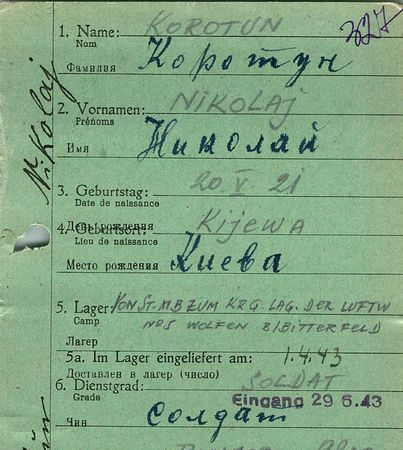 327
1. Name: KOROTUN
Nom
Фамилия Коротун
2. Vornamen: NIKOLAJ
Prénoms
Имя Николай
Nikolaj
3. Geburtstag: 20 V. 21
Date de naissance
День рождения
4. Geburtsort: Kijewa
Lieu de naissance
Место рождения Киева
5. Lager: VON ST. IIIB ZUM KRG. LAG. DER LUFTW
Camp N05 WOLFEN B/BITTERFELD
Лагерь
5a. Im Lager eingeliefert am: 1.4.43
Доставлен в лагерь (число)
6. Dienstgrad: SOLDAT
Grade Eingang 29 6.43
Чин солдат